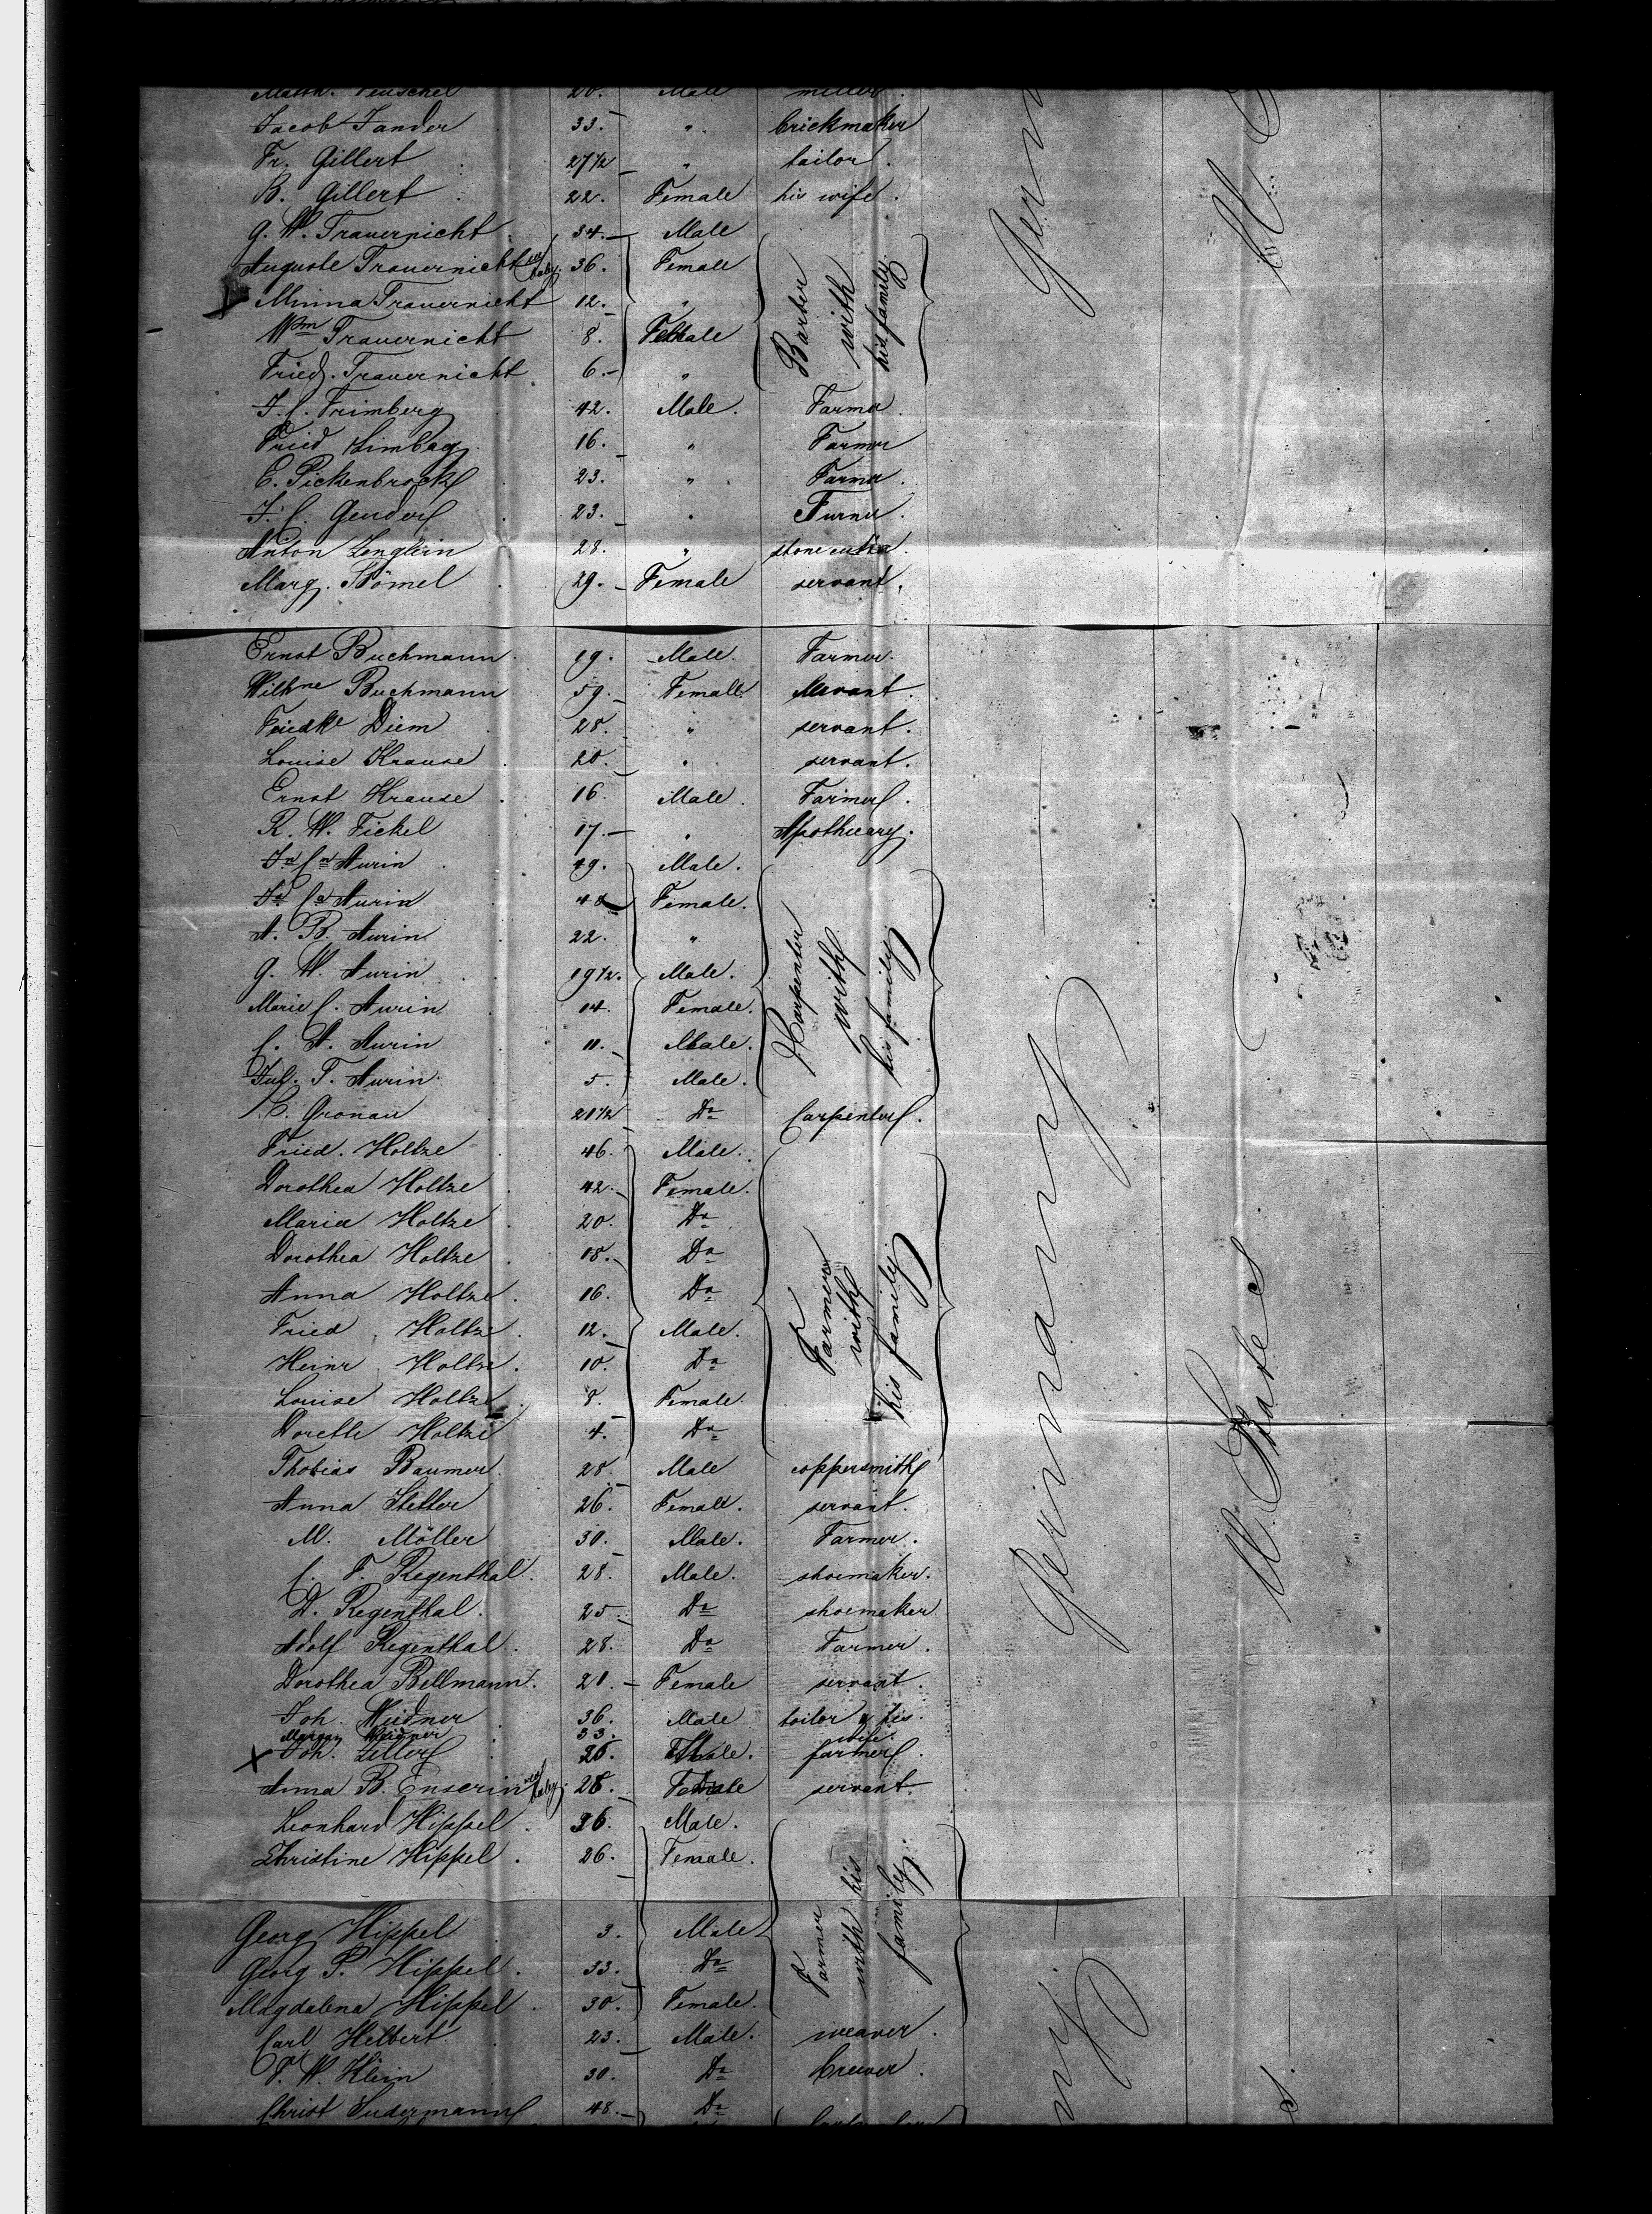 20. Male miller.
Jacob Jander 33. " brickmaker
Fr. Gillert 27 1/2 " tailor.
B. Gillert 22. Female his wife.
G. W. Trauernicht 34. Male
Auguste Trauernicht 36. Female
Minna Trauernicht 12. "
Wm Trauernicht 8. Male
Fried. Trauernicht 6. "
Barber with his family.
J. C. Frimberg 42. Male. Farmer.
Fried Limbag 16. " Farmer
C. Pickenbrock 23. " Farmer.
J. C. Gendorf 23. " Turner.
Anton Zenglein 28. " stone cutter.
Marg. Stömel 29. Female servant.
Ernst Buchmann 19. Male. Farmer.
Wilhne Buchmann 59. Female servant.
Friedke Diem 28. " servant.
Louise Krause 20. " servant.
Ernst Krause 16. Male. Farmer.
R. W. Fickel 17. " Apothecary.
Jn Cn Aurin 49. Male.
Ja Ca Aurin 48 Female.
A. B. Aurin 22. "
G. W. Aurin 19 1/2. Male.
Marie C. Aurin 14. Female.
C. A. Aurin 11. Male.
Jul. T. Aurin 5. Male.
Carpenter with his family
C. Gronau 21 1/2 Do Carpenter.
Fried. Holtze 46. Male.
Dorothea Holtze 42. Female.
Maria Holtze 20. Do
Dorothea Holtze 18. Do
Anna Holtze 16. Do
Fried Holtze 12. Male.
Heinr. Holtze 10. Do
Louise Holtze 8. Female.
Dorette Holtze 4. Do
Farmer with his family
Germany
U. States
Thobias Baumer 28. Male coppersmith
Anna Stetter 26. Female. servant.
M. Möller 30. Male. Farmer.
C. F. Regenthal 28. Male. shoemaker.
D. Regenthal. 25. Do shoemaker
Adolf Regenthal. 28. Do Farmer.
Dorothea Bellmann. 21. Female servant.
Joh. Weidner 36. Male tailor & his
Weidner 33. wife.
Joh. Zeller 26. Male. farmer.
Anna B. Enserin 28. Female servant.
Leonhard Hippel 36. Male.
Christine Hippel. 26. Female.
Georg Hippel 3. Male
Georg P. Hippel. 33. Do
Magdalena Hippel. 30. Female.
Farmer with his family.
Carl Helbert 23. Male. weaver.
F. W. Klein 30. Do brewer.
Christ Sudermann 48. Do